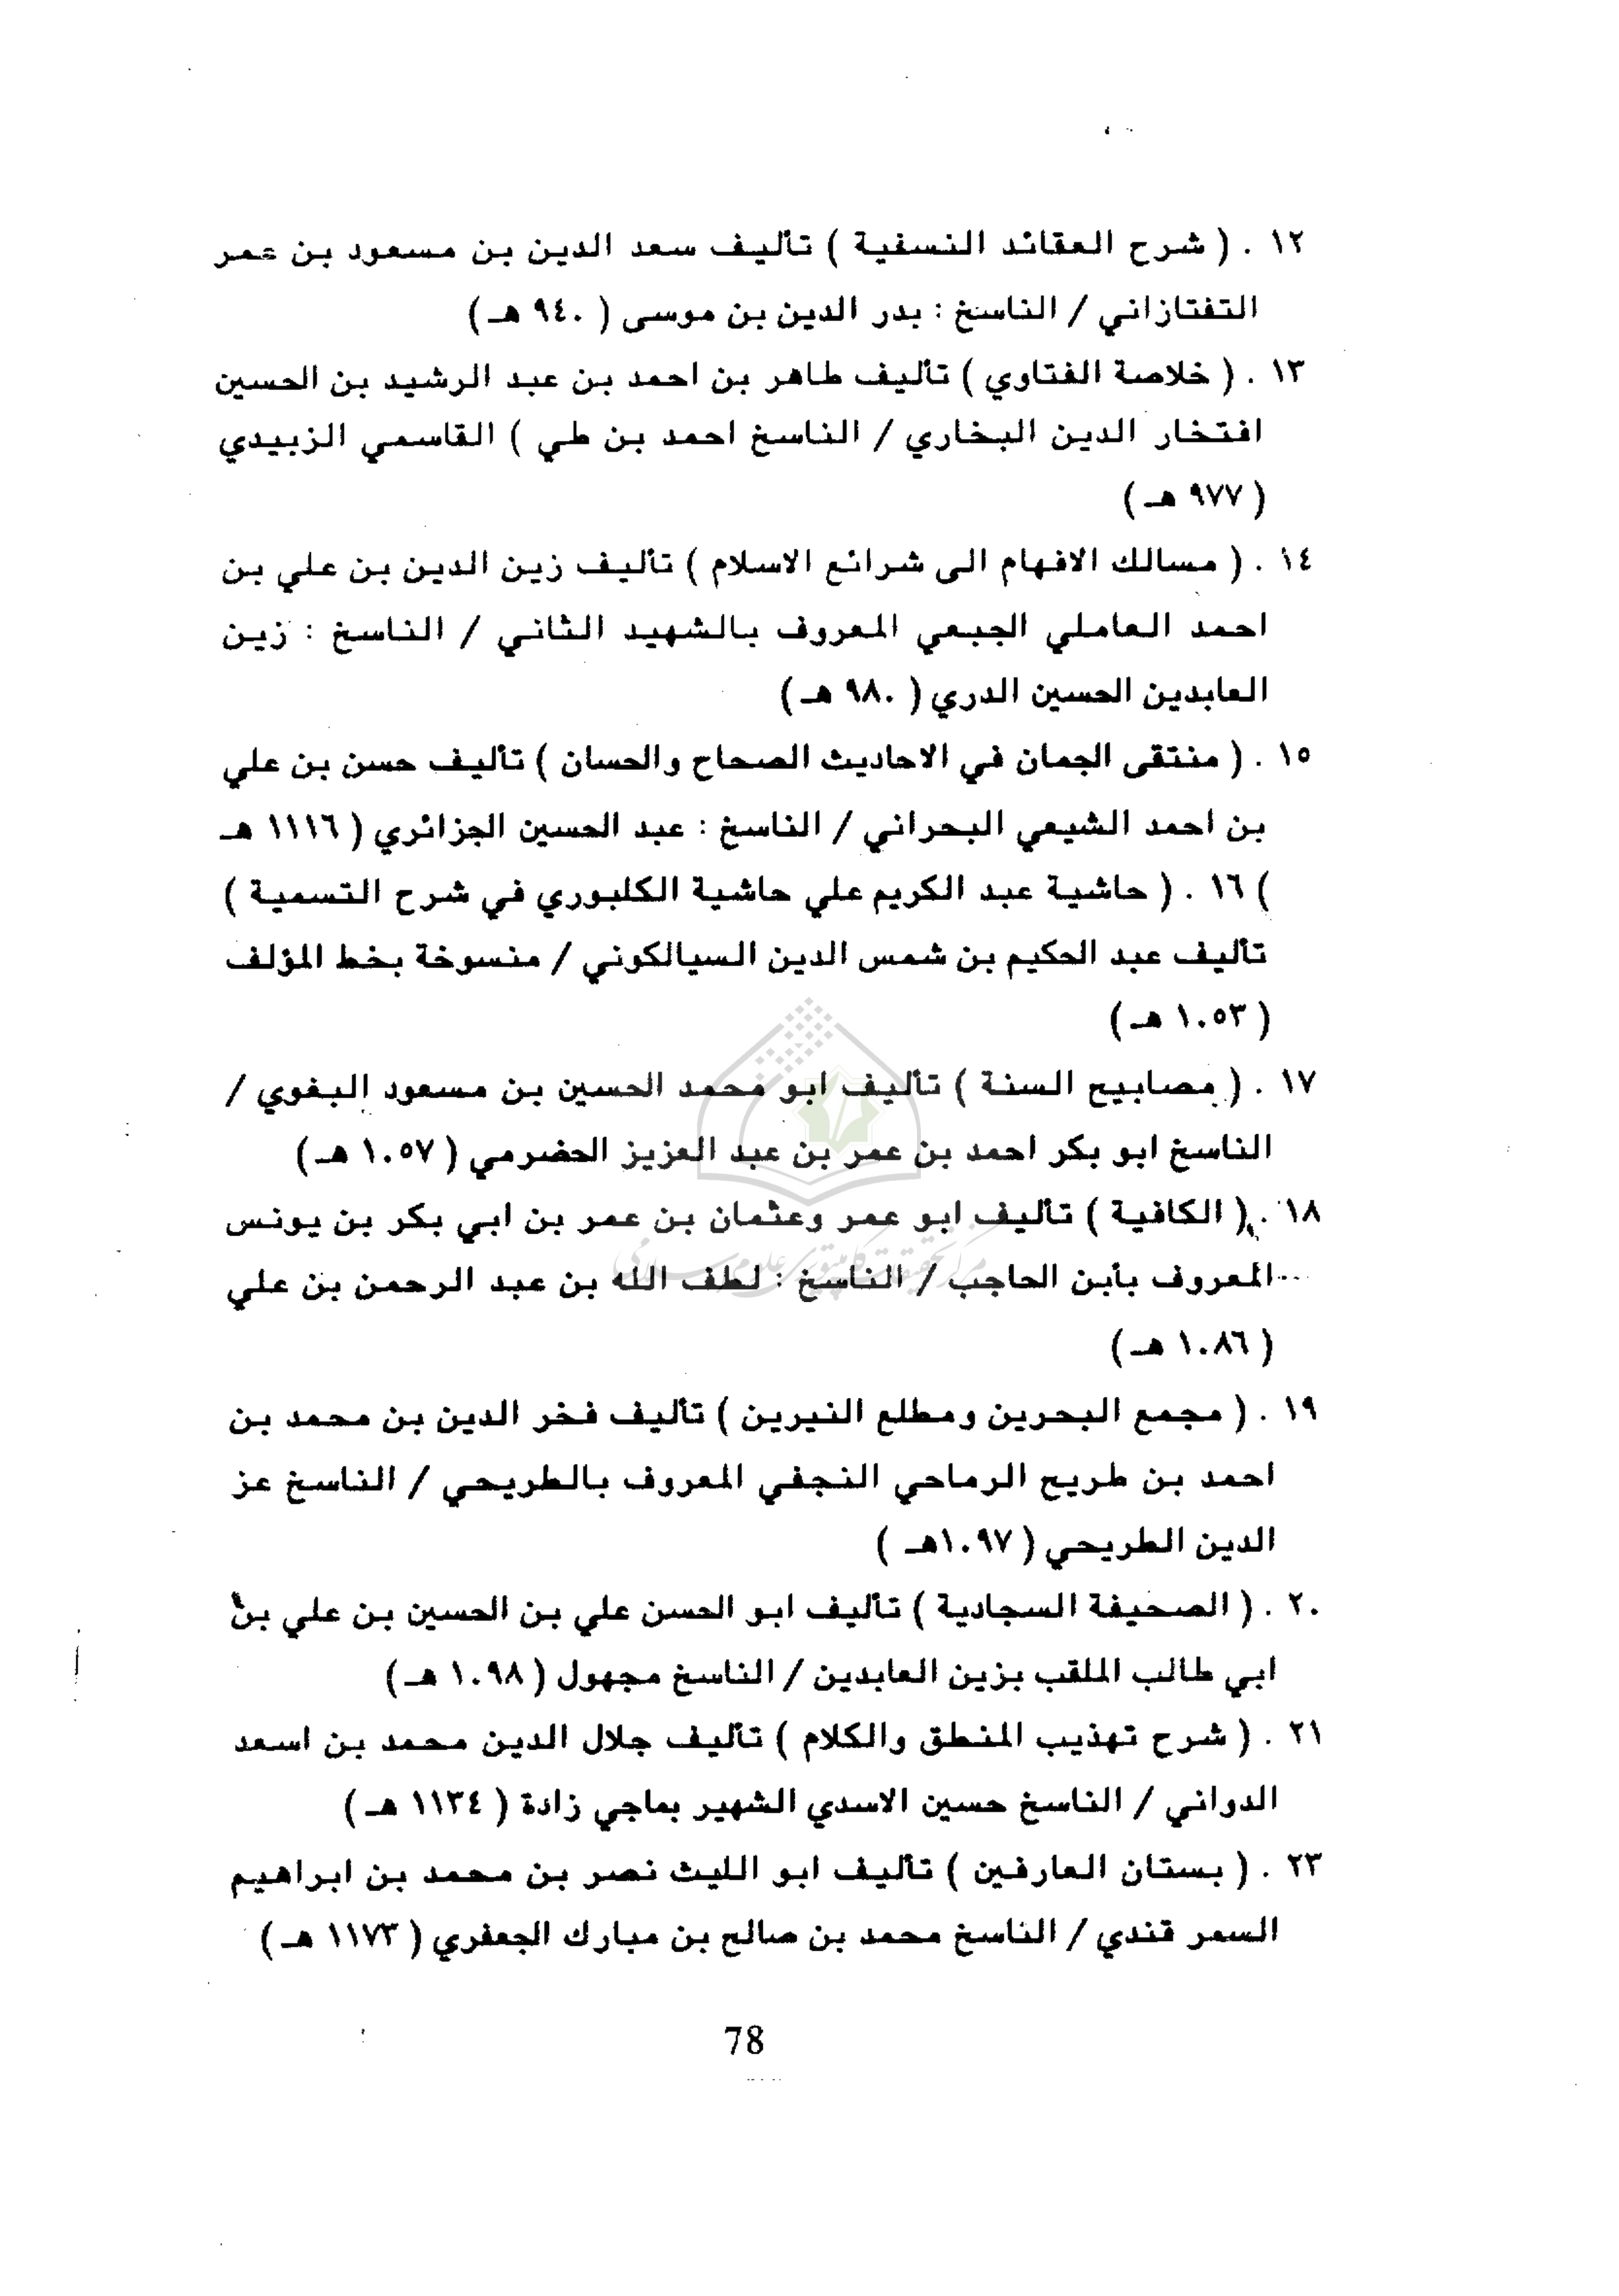 ١٢ . ( شرح العقائد النسفية ) تأليف سعد الدين بن مسعود بن عمر
التفتازاني / الناسخ : بدر الدين بن موسى ( ٩٤٠ هـ )
١٣ . ( خلاصة الفتاوي ) تأليف طاهر بن احمد بن عبد الرشيد بن الحسين
افتخار الدين البخاري / الناسخ احمد بن طي ) القاسمي الزبيدي
( ٩٧٧ هـ )
١٤ . ( مسالك الافهام الى شرائع الاسلام ) تأليف زين الدين بن علي بن
احمد العاملي الجبعي المعروف بالشهيد الثاني / الناسخ : زين
العابدين الحسين الدري ( ٩٨٠ هـ )
١٥ . ( منتقى الجمان في الاحاديث الصحاح والحسان ) تأليف حسن بن علي
بن احمد الشيعي البحراني / الناسخ : عبد الحسين الجزائري ( ١١١٦ هـ
) ١٦ . ( حاشية عبد الكريم علي حاشية الكلبوري في شرح التسمية )
تأليف عبد الحكيم بن شمس الدين السيالكوني / منسوخة بخط المؤلف
( ١٠٥٣ هـ )
١٧ . ( مصابيح السنة ) تأليف ابو محمد الحسين بن مسعود البغوي /
الناسخ ابو بكر احمد بن عمر بن عبد العزيز الحضرمي ( ١٠٥٧ هـ )
١٨ . ( الكافية ) تأليف ابو عمر وعثمان بن عمر بن ابي بكر بن يونس
المعروف بأبن الحاجب / الناسخ : لطف الله بن عبد الرحمن بن علي
( ١٠٨٦ هـ )
١٩ . ( مجمع البحرين ومطلع النيرين ) تأليف فخر الدين بن محمد بن
احمد بن طريح الرماحي النجفي المعروف بالطريحي / الناسخ عز
الدين الطريحي ( ١٠٩٧هـ )
٢٠ . ( الصحيفة السجادية ) تأليف ابو الحسن علي بن الحسين بن علي بن
ابي طالب الملقب بزين العابدين / الناسخ مجهول ( ١٠٩٨ هـ )
٢١ . ( شرح تهذيب المنطق والكلام ) تأليف جلال الدين محمد بن اسعد
الدواني / الناسخ حسين الاسدي الشهير بماجي زادة ( ١١٣٤ هـ )
٢٣ . ( بستان العارفين ) تأليف ابو الليث نصر بن محمد بن ابراهيم
السمر قندي / الناسخ محمد بن صالح بن مبارك الجعفري ( ١١٧٣ هـ )
78
مرکز تحقیقات کامپیوتری علوم اسلامی